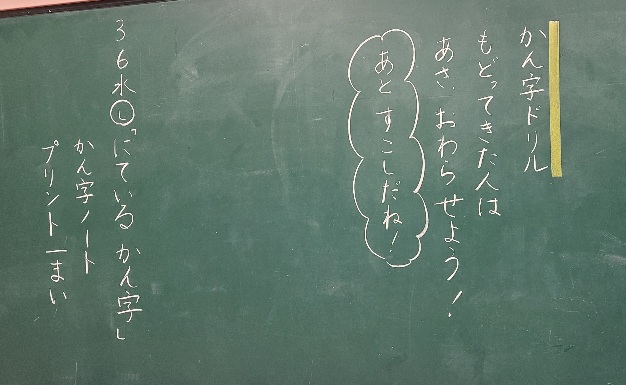 かん字ドリル
もどってきた人は
あさ おわらせよう!
あと すこしだね!
3 6 水 Ⓛ「にている かん字」
かん字ノート
プリント一まい